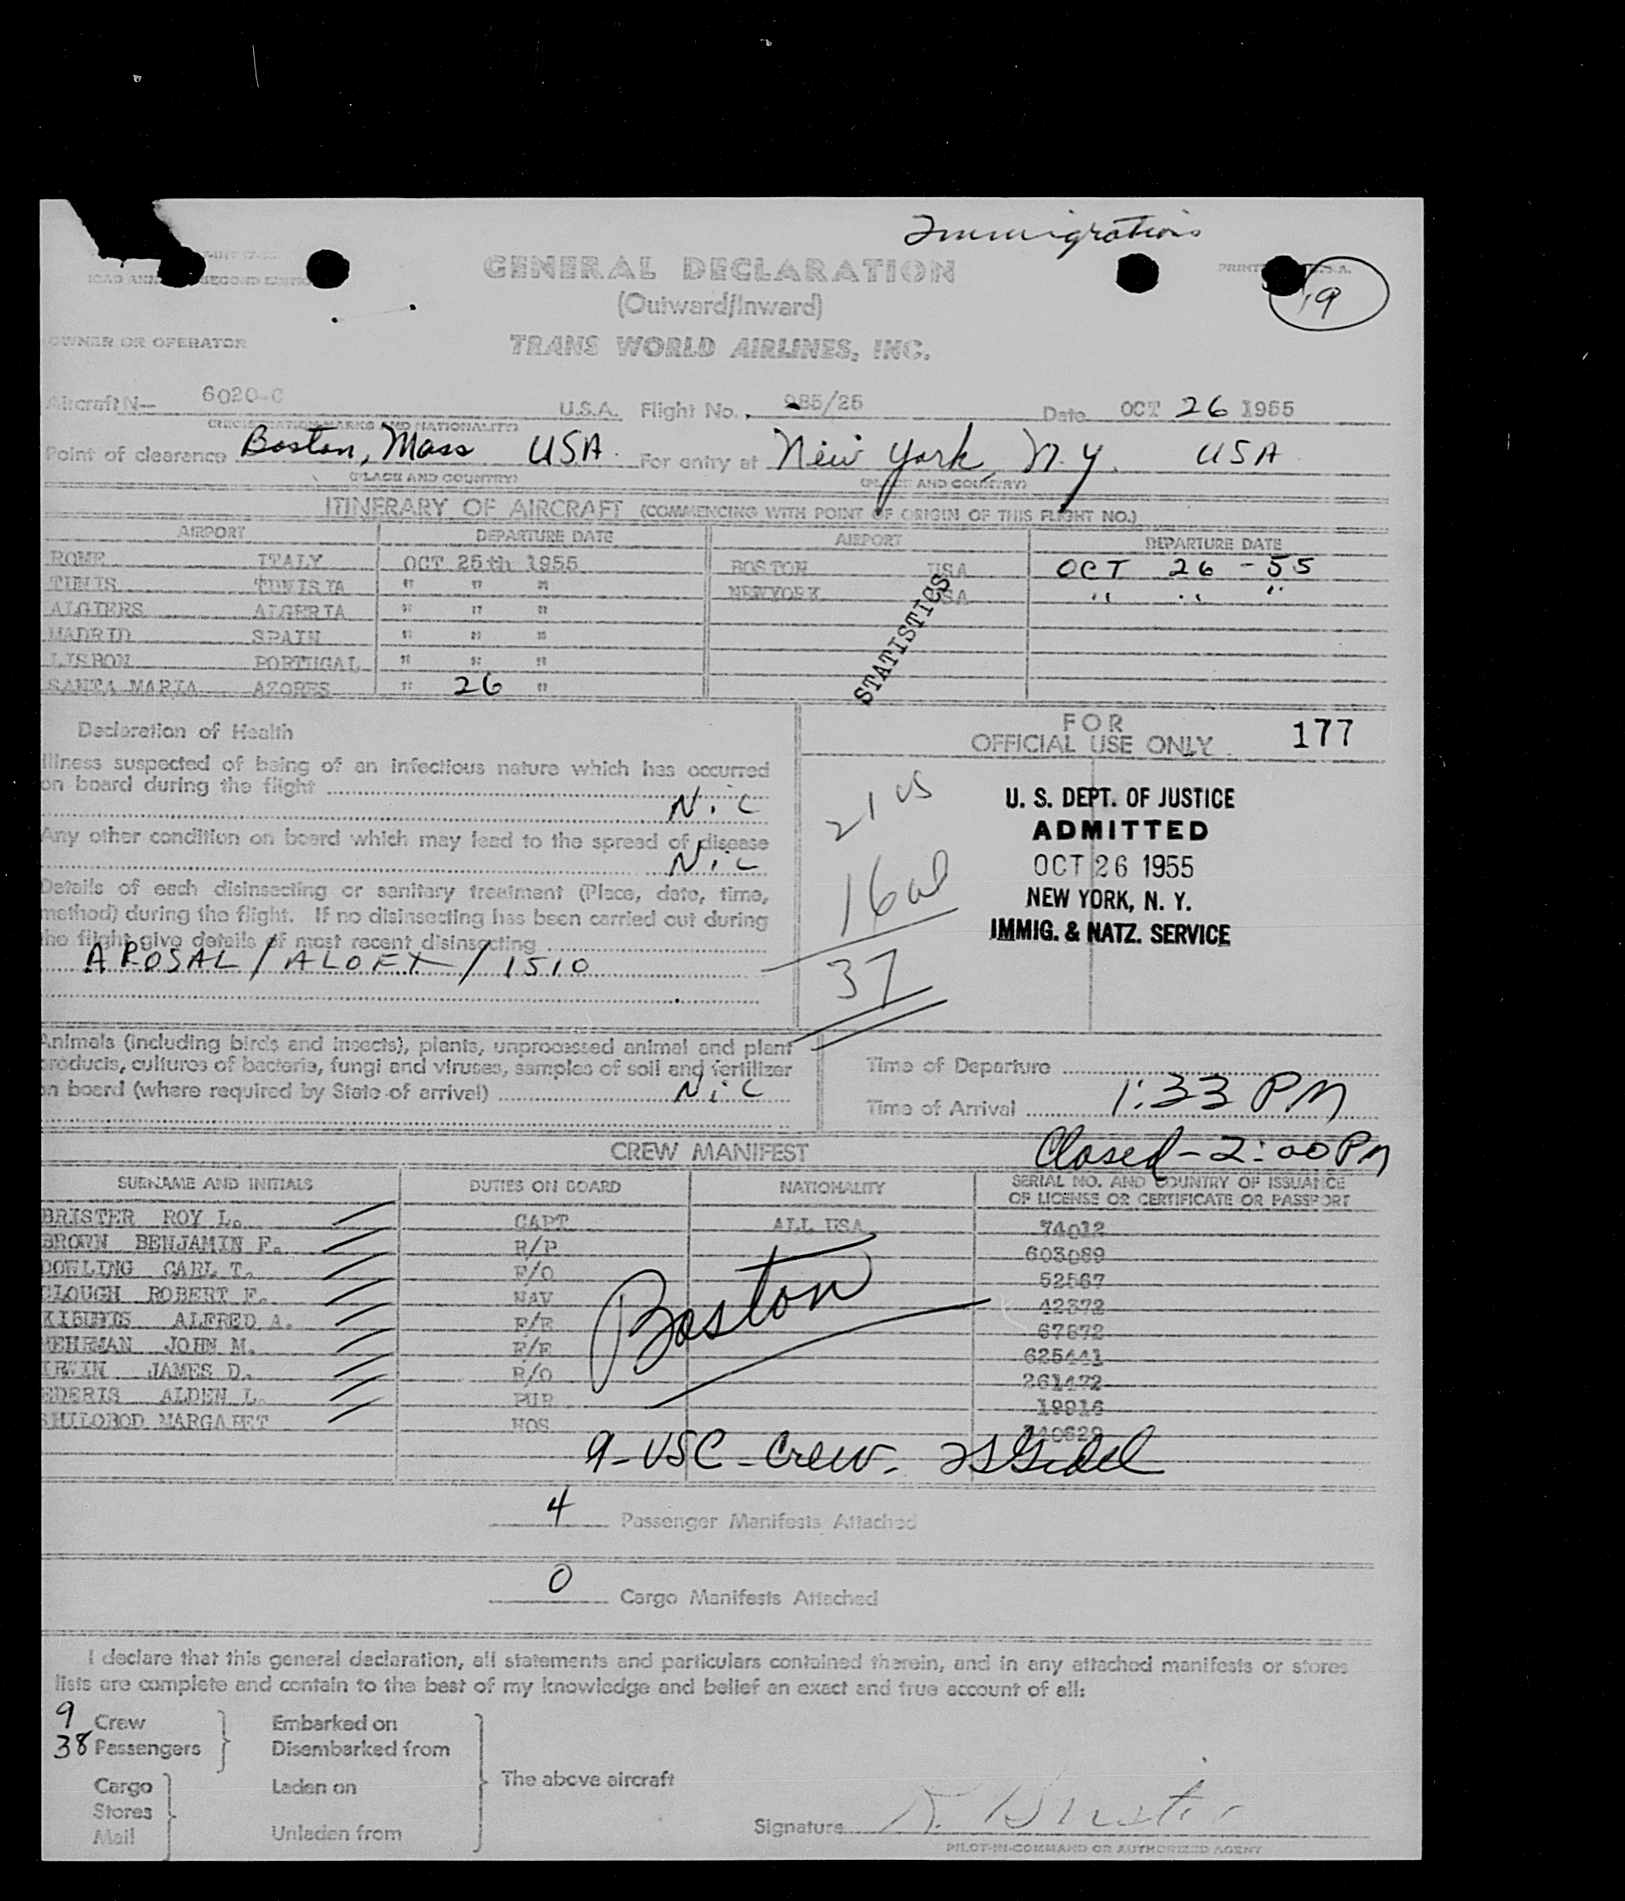 Immigration
SECOND EDITION
GENERAL DECLARATION
(Outward/Inward)
19
OWNER OR OPERATOR
TRANS WORLD AIRLINES, INC.
Aircraft N— 6020-C U.S.A. Flight No. 985/25 Date OCT 26 1955
(REGISTRATION MARKS AND NATIONALITY)
Point of clearance Boston, Mass USA. For entry at New York, N.Y. USA
(PLACE AND COUNTRY) (PLACE AND COUNTRY)
ITINERARY OF AIRCRAFT (COMMENCING WITH POINT OF ORIGIN OF THIS FLIGHT NO.)
AIRPORT DEPARTURE DATE AIRPORT DEPARTURE DATE
ROME ITALY OCT 25th 1955 BOSTON USA OCT 26 - 55
TUNIS TUNISIA " " " NEWYORK USA " " "
ALGIERS ALGERIA " " "
MADRID SPAIN " " "
LISBON PORTUGAL " " "
SANTA MARIA AZORES " 26 "
STATISTICS
Declaration of Health
Illness suspected of being of an infectious nature which has occurred
on board during the flight
NiL
Any other condition on board which may lead to the spread of disease
NiL
Details of each disinsecting or sanitary treatment (Place, date, time,
method) during the flight. If no disinsecting has been carried out during
the flight give details of most recent disinsecting
AROSAL / ALOFT / 1510
FOR
OFFICIAL USE ONLY 177
21 us
16 al
37
U. S. DEPT. OF JUSTICE
ADMITTED
OCT 26 1955
NEW YORK, N. Y.
IMMIG. & NATZ. SERVICE
Animals (including birds and insects), plants, unprocessed animal and plant
products, cultures of bacteria, fungi and viruses, samples of soil and fertilizer
on board (where required by State of arrival) NiL
Time of Departure
Time of Arrival 1:33 PM
Closed - 2:00 PM
CREW MANIFEST
SURNAME AND INITIALS DUTIES ON BOARD NATIONALITY SERIAL NO. AND COUNTRY OF ISSUANCE
OF LICENSE OR CERTIFICATE OR PASSPORT
BRISTER ROY L. CAPT ALL USA 74012
BROWN BENJAMIN F. R/P 603089
DOWLING CARL T. F/O 52567
CLOUGH ROBERT F. NAV 42372
ALFRED A. F/E 67872
MEHRMAN JOHN M. F/E 625441
IRWIN JAMES D. R/O 261472
EDERIS ALDEN L. PUR 19916
SHILOBOD MARGARET HOS
Boston
9 - USC - Crew.
4 Passenger Manifests Attached
0 Cargo Manifests Attached
I declare that this general declaration, all statements and particulars contained therein, and in any attached manifests or stores
lists are complete and contain to the best of my knowledge and belief an exact and true account of all:
9 Crew Embarked on
38 Passengers Disembarked from
The above aircraft
Cargo Laden on
Stores
Mail Unladen from
Signature R. Brister
PILOT-IN-COMMAND OR AUTHORIZED AGENT